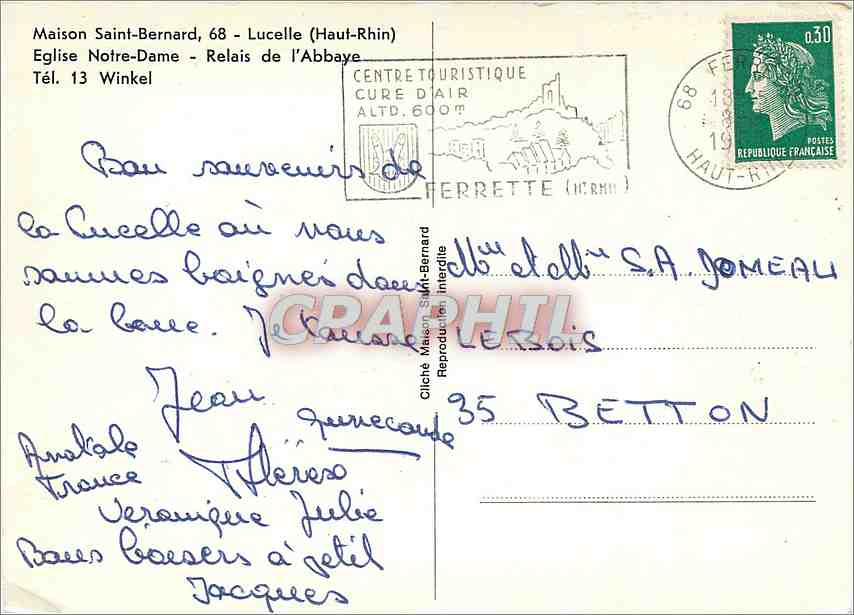 Maison Saint-Bernard, 68 - Lucelle (Haut-Rhin)
Eglise Notre-Dame - Relais de l'Abbaye
Tél. 13 Winkel
CENTRE TOURISTIQUE
CURE D'AIR
ALTD. 600m
FERRETTE (HT RHIN)
68
HAUT-RHIN
0,30
POSTES
REPUBLIQUE FRANÇAISE
Bon souvenirs de
la Lucelle où nous
sommes baignés dans
la boue. Je
Jean
Anatole
France Thérese
Veronique Julie
Bons baisers à petit
Jacques
Cliché Maison Saint-Bernard
Reproduction interdite
et S.A. JOMEAU
LE BOIS
35 BETTON
CPARHTIL